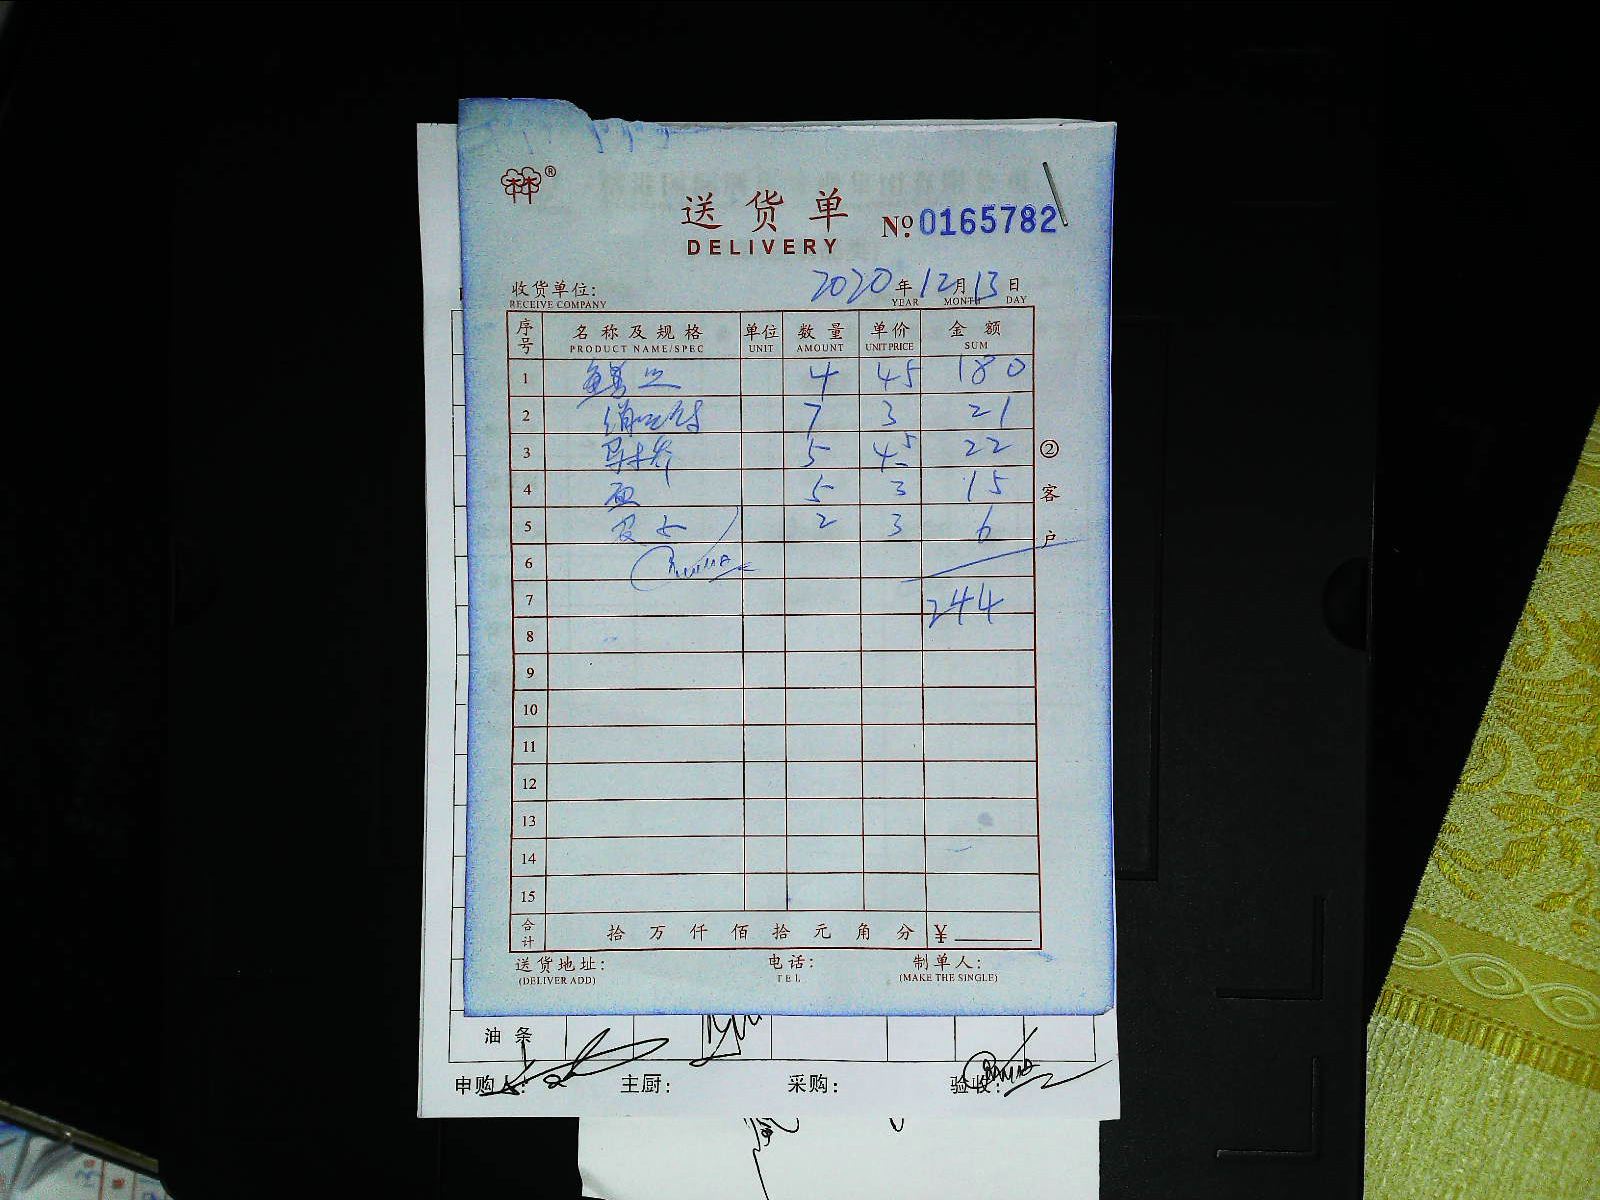 送货单
DELIVERY
№ 0165782
2020年12月13日
YEAR MONTH DAY
收货单位：
RECEIVE COMPANY
序号 名称及规格 单位 数量 单价 金额
PRODUCT NAME/SPEC UNIT AMOUNT UNIT PRICE SUM
1 4 45 180
2 7 3 21
3 5 4.5 22
4 5 3 15
5 2 3 6
6
7 244
8
9
10
11
12
13
14
15
合计 拾 万 仟 佰 拾 元 角 分 ¥
送货地址： 电话： 制单人：
(DELIVER ADD) TEL (MAKE THE SINGLE)
②客户
油条
申购人： 主厨： 采购： 验收：